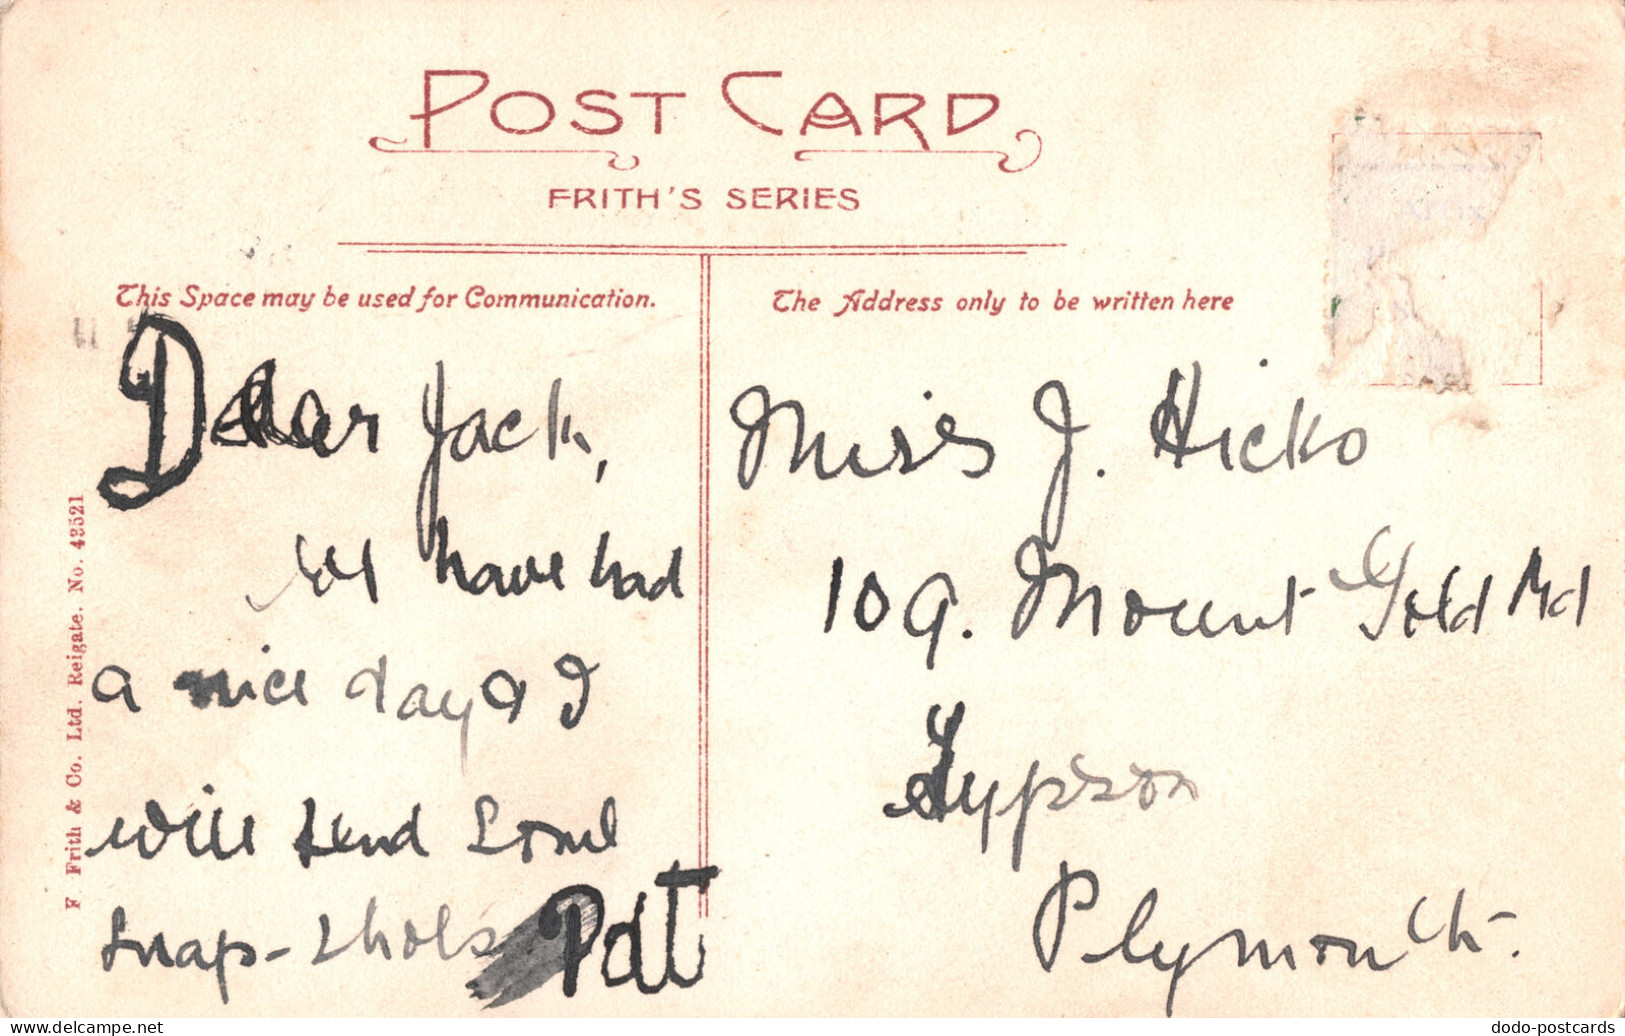 POST CARD
FRITH'S SERIES
This Space may be used for Communication.
The Address only to be written here
Dear Jack,
We have had
a nice day & I
will send some
snap-shots Pat
Miss J. Hicks
109. Mount Gold Rd
Lypson
Plymouth.
F Frith & Co. Ltd. Reigate. No. 42521
dodo-postcards